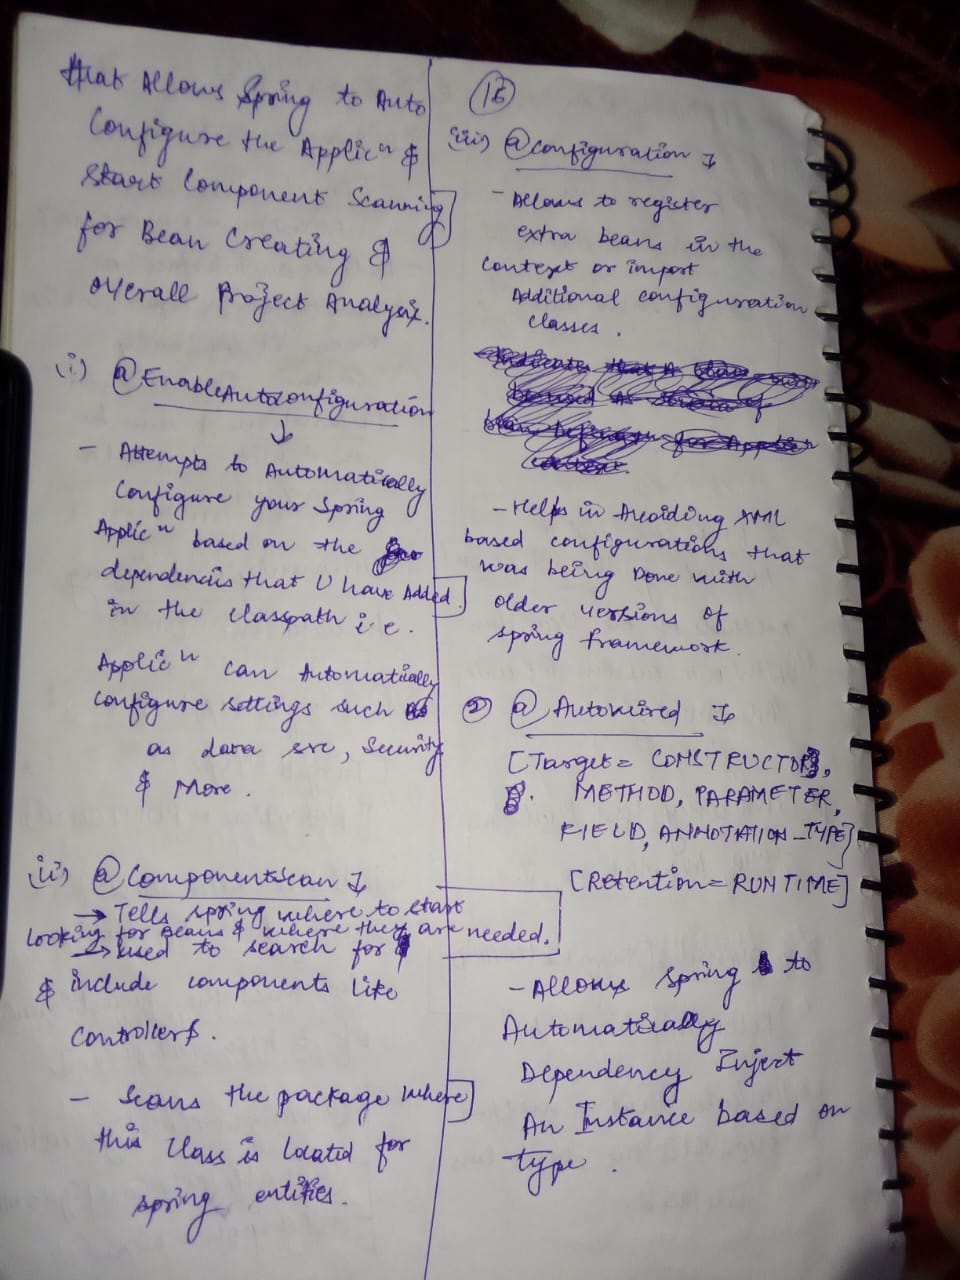 that Allows Spring to Auto
Configure the Applicⁿ &
Start Component Scanning
for Bean Creating &
Overall Project Analysis.
(i) @EnableAutoconfiguration
- Attempts to Automatically
Configure your Spring
Applicⁿ based on the
dependencies that U have Added
in the classpath i.e.
Applicⁿ can Automatically
configure settings such
as data src, Security
& More.
(ii) @ComponentScan
→ Tells spring where to start
looking for beans & where they are needed.
→ used to search for
& include components like
Controllers.
- Scans the package where
this Class is located for
spring entities.
16
(iii) @Configuration
- Allows to register
extra beans in the
context or import
Additional configuration
classes.
- Helps in Avoiding XML
based configurations that
was being Done with
older versions of
spring framework.
② @Autowired
[Target = CONSTRUCTOR,
METHOD, PARAMETER,
FIELD, ANNOTATION_TYPE]
[Retention = RUNTIME]
- Allows spring to
Automatically
Dependency Inject
An Instance based on
type.